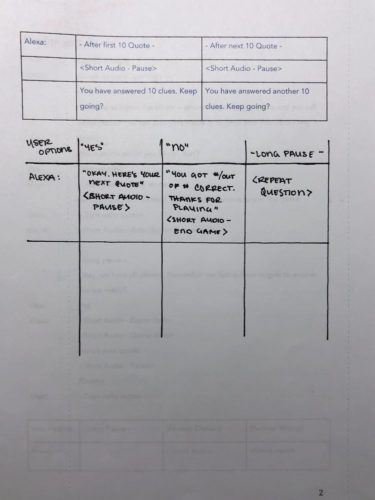 Alexa:
- After first 10 Quote -
- After next 10 Quote -
<Short Audio - Pause>
<Short Audio - Pause>
You have answered 10 clues. Keep
going?
You have answered another 10
clues. Keep going?
USER
OPTIONS
"YES"
"NO"
- LONG PAUSE -
ALEXA:
"OKAY. HERE'S YOUR
NEXT QUOTE"
<SHORT AUDIO -
PAUSE>
"YOU GOT #/OUT
OF # CORRECT.
THANKS FOR
PLAYING"
<SHORT AUDIO -
END GAME>
<REPEAT
QUESTION>
2